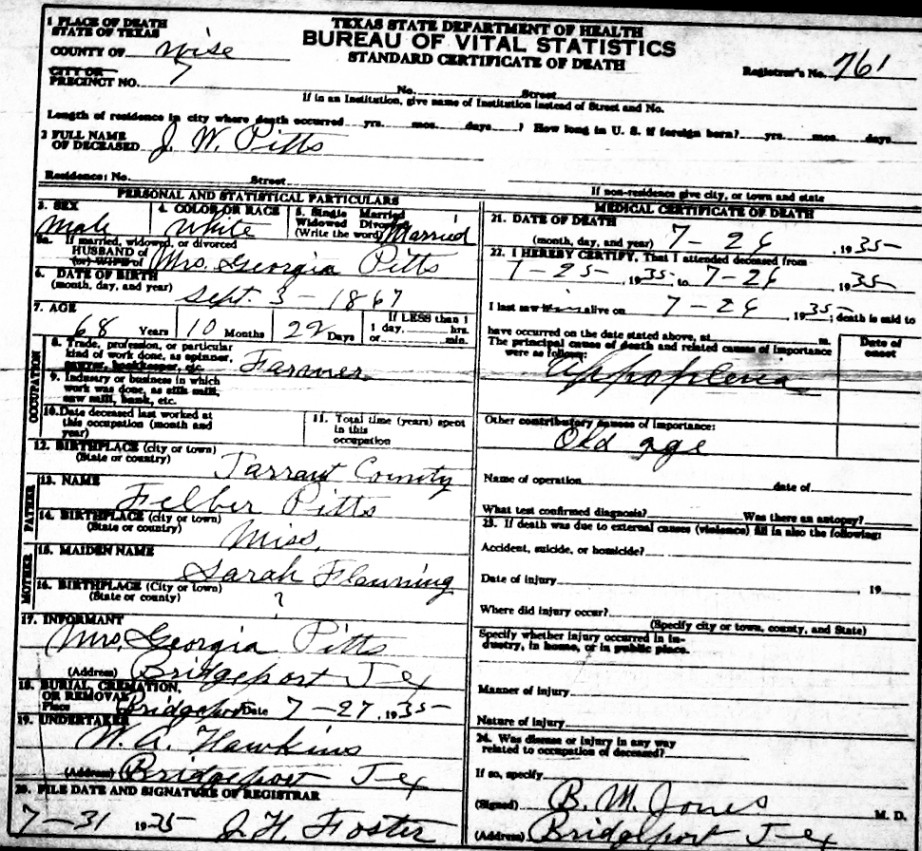 TEXAS STATE DEPARTMENT OF HEALTH
BUREAU OF VITAL STATISTICS
STANDARD CERTIFICATE OF DEATH
1 PLACE OF DEATH
STATE OF TEXAS
COUNTY OF Wise
CITY OR
PRECINCT NO. 7
Registrar's No. 761
No. Street
If in an Institution, give name of Institution instead of Street and No.
Length of residence in city where death occurred yrs. mos. days ? How long in U. S. if foreign born? yrs. mos. days
2 FULL NAME
OF DECEASED J. W. Pitts
Residence: No. Street
If non-residence give city, or town and state
PERSONAL AND STATISTICAL PARTICULARS
3. SEX
Male
4. COLOR OR RACE
White
5. Single Married
Widowed Divorced
(Write the word) Married
5a. If married, widowed, or divorced
HUSBAND of
(or) WIFE of Mrs. Georgia Pitts
6. DATE OF BIRTH
(month, day, and year) Sept. 3 - 1867
7. AGE
68 Years 10 Months 22 Days
If LESS than 1
1 day, hrs.
or min.
OCCUPATION
8. Trade, profession, or particular
kind of work done, as spinner,
sawyer, bookkeeper, etc. Farmer
9. Industry or business in which
work was done, as silk mill,
saw mill, bank, etc.
10. Date deceased last worked at
this occupation (month and
year)
11. Total time (years) spent
in this
occupation
12. BIRTHPLACE (city or town)
(State or country) Tarrant County
FATHER
13. NAME
Felber Pitts
14. BIRTHPLACE (city or town)
(State or country) Miss.
MOTHER
15. MAIDEN NAME
Sarah Flanning
16. BIRTHPLACE (City or town)
(State or county) ?
17. INFORMANT
Mrs. Georgia Pitts
(Address) Bridgeport Tex
18. BURIAL, CREMATION,
OR REMOVAL
Place Bridgeport Date 7-27, 1935
19. UNDERTAKER
W. A. Hawkins
(Address) Bridgeport Tex
20. FILE DATE AND SIGNATURE OF REGISTRAR
7-31 1935 J. H. Foster
MEDICAL CERTIFICATE OF DEATH
21. DATE OF DEATH
(month, day, and year) 7-26, 1935
22. I HEREBY CERTIFY, That I attended deceased from
7-25, 1935, to 7-26, 1935
I last saw him alive on 7-26, 1935; death is said to
have occurred on the date stated above, at m.
The principal cause of death and related causes of importance
were as follows:
Date of
onset
Other contributory causes of importance:
Old age
Name of operation date of
What test confirmed diagnosis? Was there an autopsy?
23. If death was due to external causes (violence) fill in also the following:
Accident, suicide, or homicide?
Date of injury , 19
Where did injury occur?
(Specify city or town, county, and State)
Specify whether injury occurred in in-
dustry, in home, or in public place.
Manner of injury
Nature of injury
24. Was disease or injury in any way
related to occupation of deceased?
If so, specify
(Signed) B. M. Jones M. D.
(Address) Bridgeport Tex